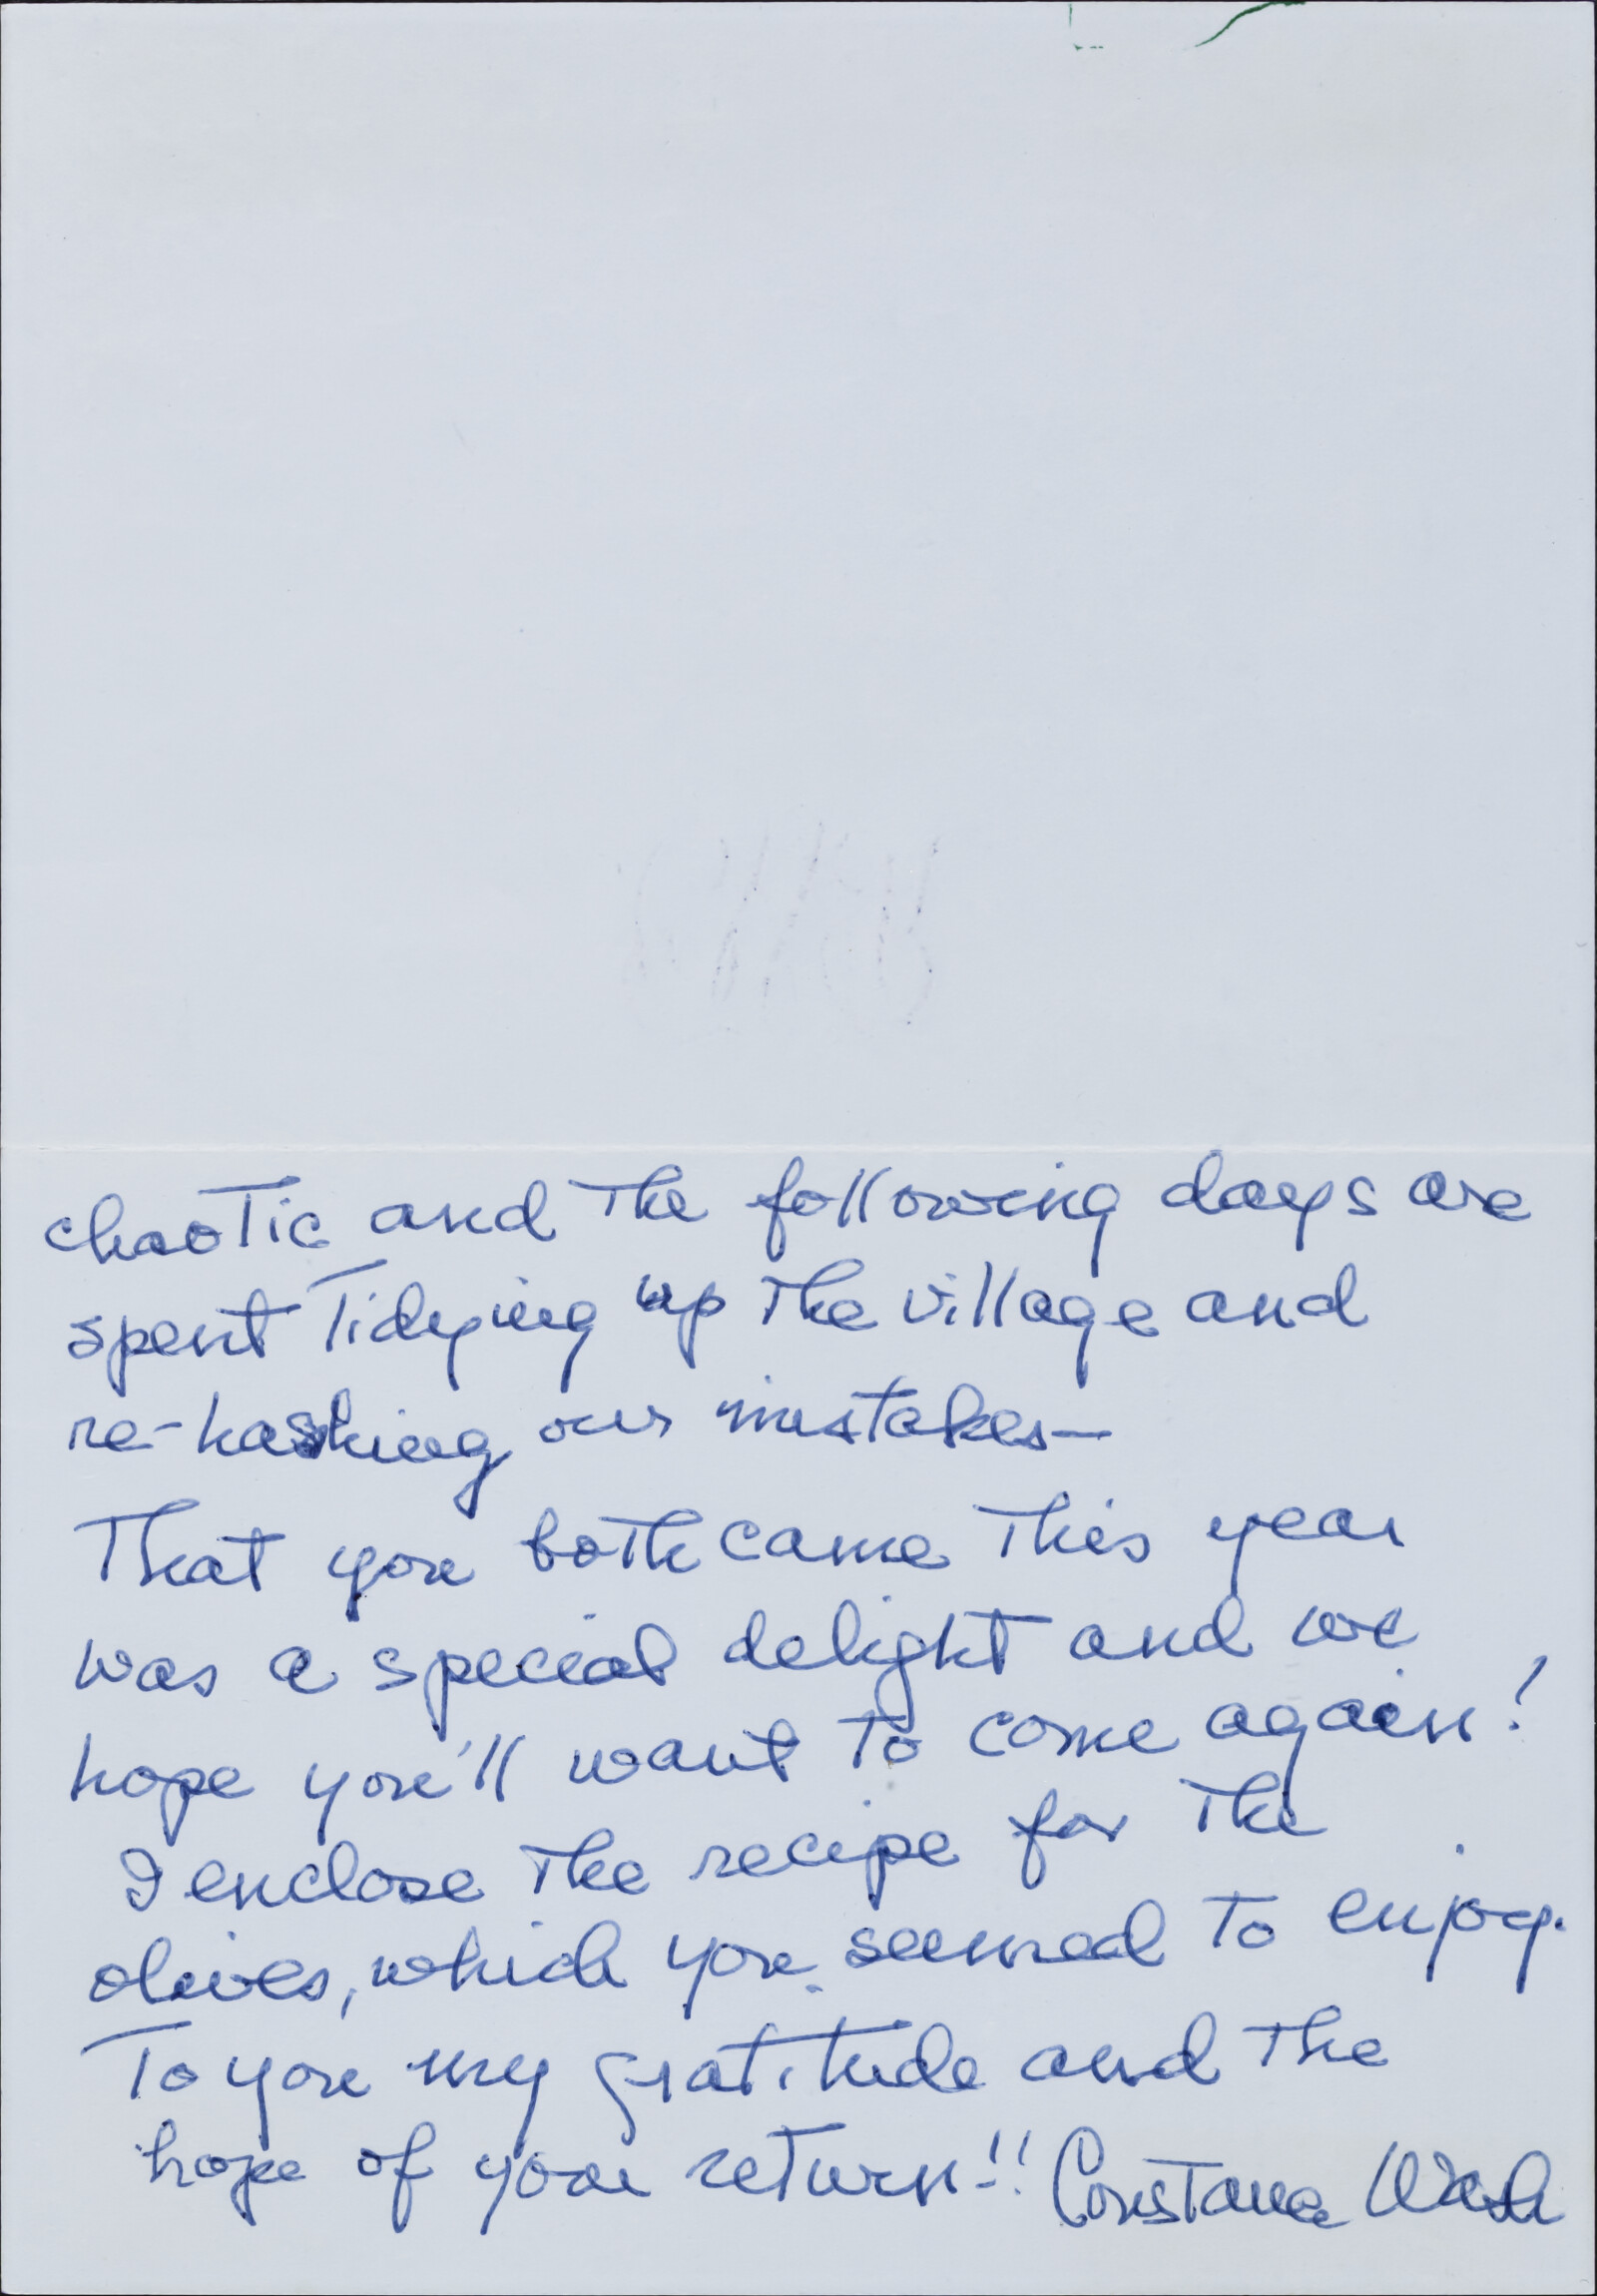 chaotic and the following days are
spent Tidying up the village and
re-hashing our mistakes—
That you both came this year
was a special delight and we
hope you'll want to come again!
I enclose the recipe for the
olives, which you seemed to enjoy.
To you my gratitude and the
hope of your return!! Constance